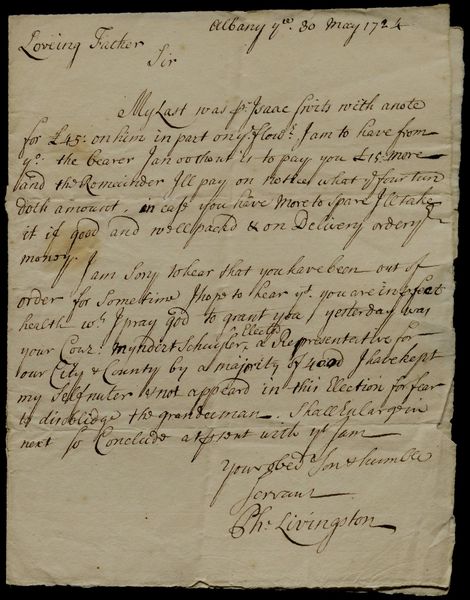 Albany yᵉ 30 May 1724
Loveing Father
Sir
My Last was pʳ Isaac with a note
for £45: on him in part on yᵉ flowʳ I am to have from
yᵒ. the bearer Jan oothout is to pay you £15 more
and the Remainder I'll pay on notice what yᵉ four tun
doth amount. in case you have More to Spare I'll take
it if good and well packd & on Delivery order yᵉ
money.
I am Sory to hear that you have been out of
order for Sometime I hope to hear yᵗ you are in perfect
health wʰ I pray god to grant you yesterday was
your Couz: Myndert Schuyler, Elected a Representetive for
our City & County by a majority of I have kept
my Self nuter & not appeard in this Election for fear
to disoblidge the grandeeman. Shall Enlarge in
next So Conclude at psent with yᵗ I am
Your obedᵗ Son & humble
Servant
Phˢ Livingston